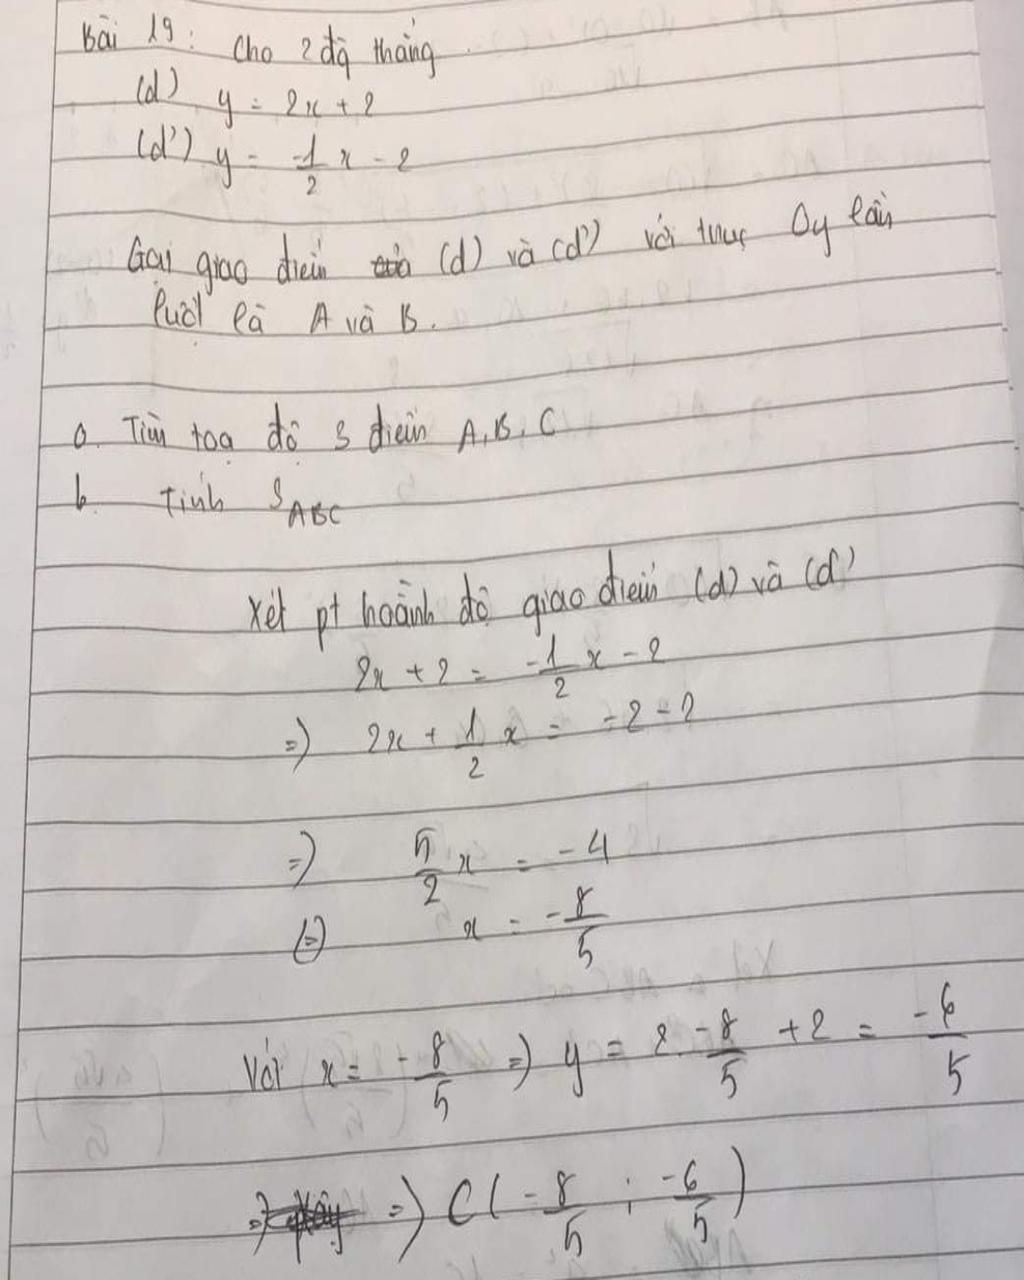 Bài 19: Cho 2 đg thẳng
(d) y = 2x + 2
(d') y = -1/2 x - 2
Gọi giao điểm (d) và (d') với trục Oy lần
lượt là A và B.
a. Tìm toạ độ 3 điểm A, B, C
b. Tính S_ABC
Xét pt hoành độ giao điểm (d) và (d'
2x + 2 = -1/2 x - 2
=) 2x + 1/2 x = -2 - 2
=) 5/2 x = -4
(=) x = -8/5
Với x = -8/5 =) y = 2. -8/5 + 2 = -6/5
=) C(-8/5 ; -6/5)